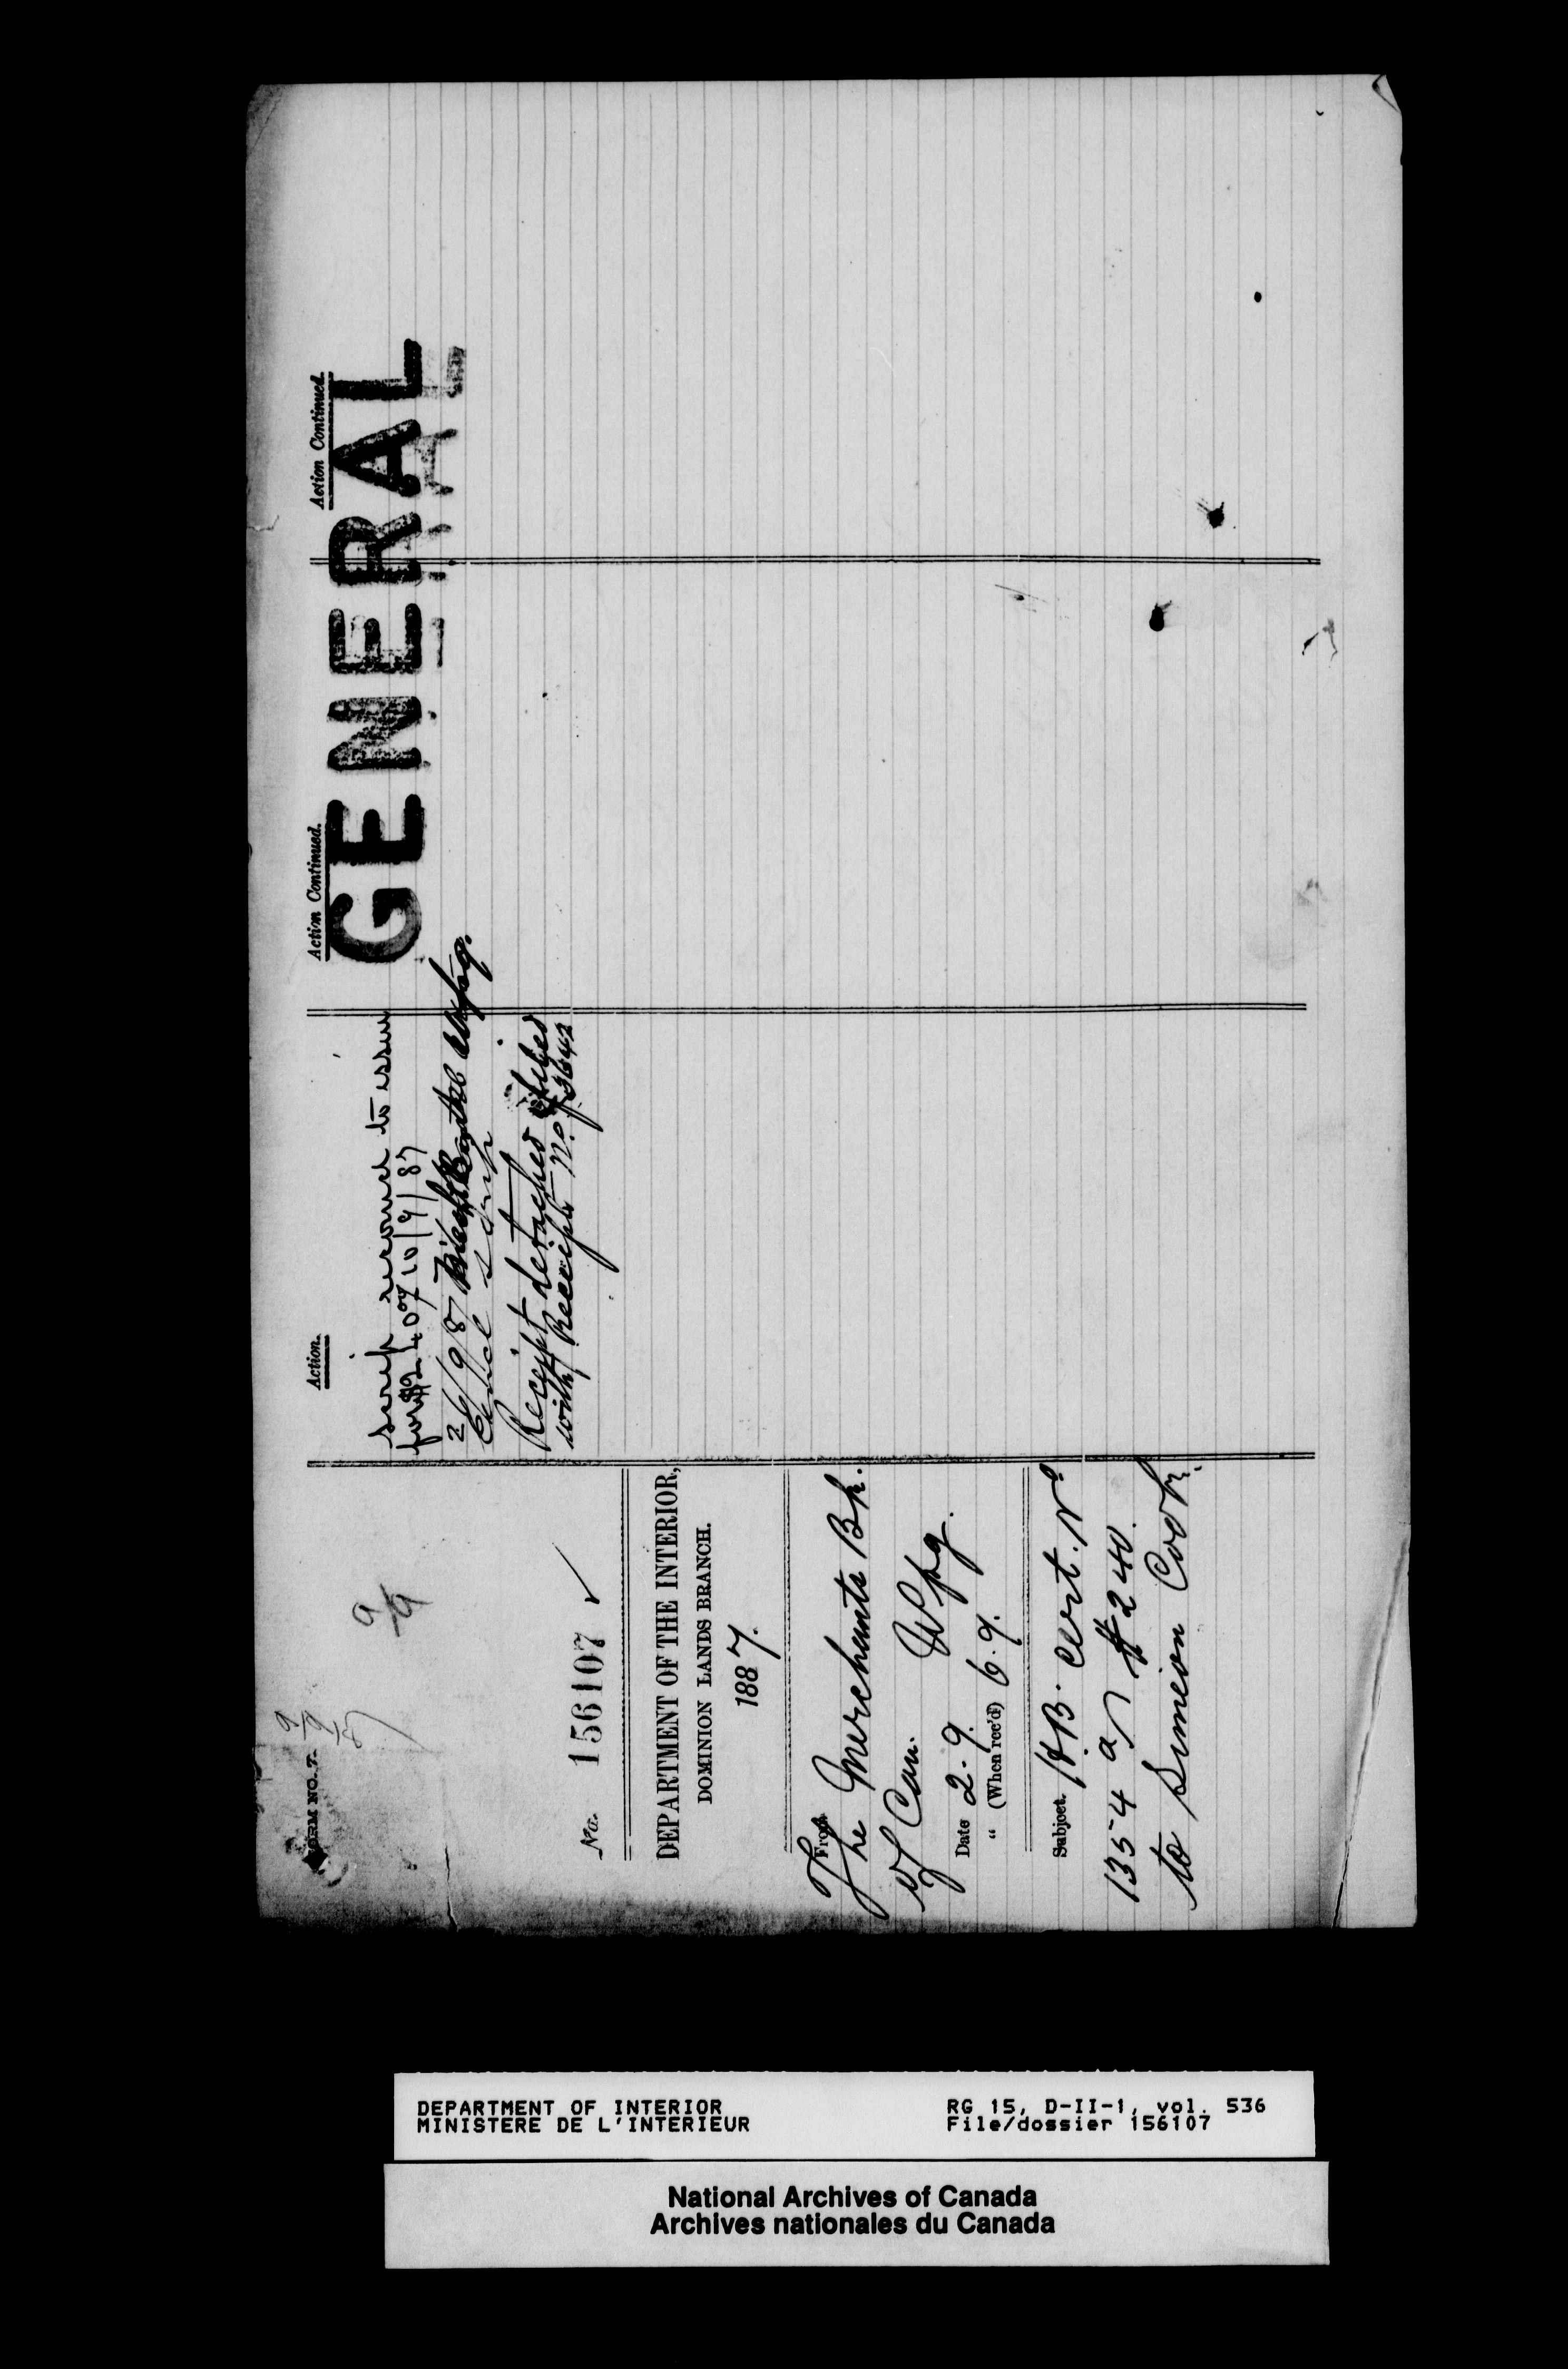 FORM NO. 7.
9/9/87
9/9
No. 156107 ✓
DEPARTMENT OF THE INTERIOR,
DOMINION LANDS BRANCH.
1887.
From The Merchants Bk.
of Can. Wpg.
Date 2.9.
" (When rec'd) 6.9.
Subject. H.B. Cert. No
1354 $240.
to Simeon Cook.
Action.
Scrip request to issue
for $240 10/9/87
26/9/87 Wpg.
scrip
Receipt detached & filed
with Receipt No.
Action Continued.
Action Continued.
GENERAL
DEPARTMENT OF INTERIOR
MINISTERE DE L'INTERIEUR
RG 15, D-II-1, vol. 536
File/dossier 156107
National Archives of Canada
Archives nationales du Canada